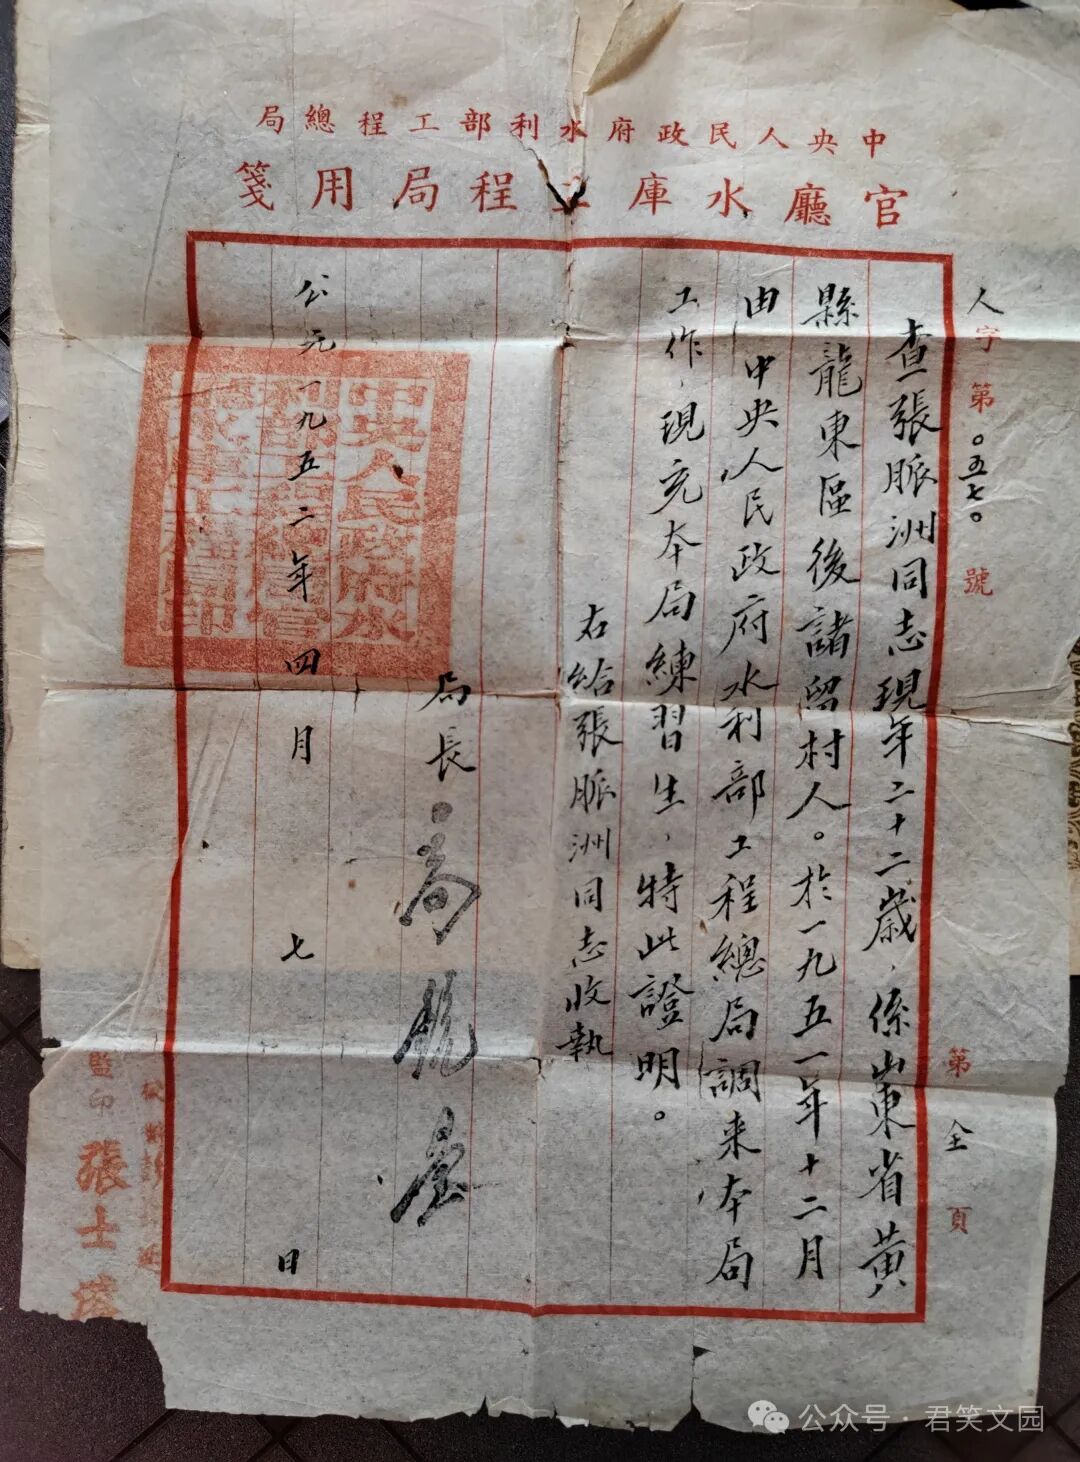 中央人民政府水利部工程總局
官廳水庫工程局用箋
人字第〇五七〇號
第全頁
查張脈洲同志現年二十二歲，係山東省黃
縣龍東區後諸留村人。於一九五一年十二月
由中央人民政府水利部工程總局調来本局
工作，現充本局練習生，特此證明。
右給張脈洲同志收執
局長
公元一九五二年四月七日
中央人民政府水
利部工程總局官
廳水庫工程局印
監印張士
公众号·君笑文园